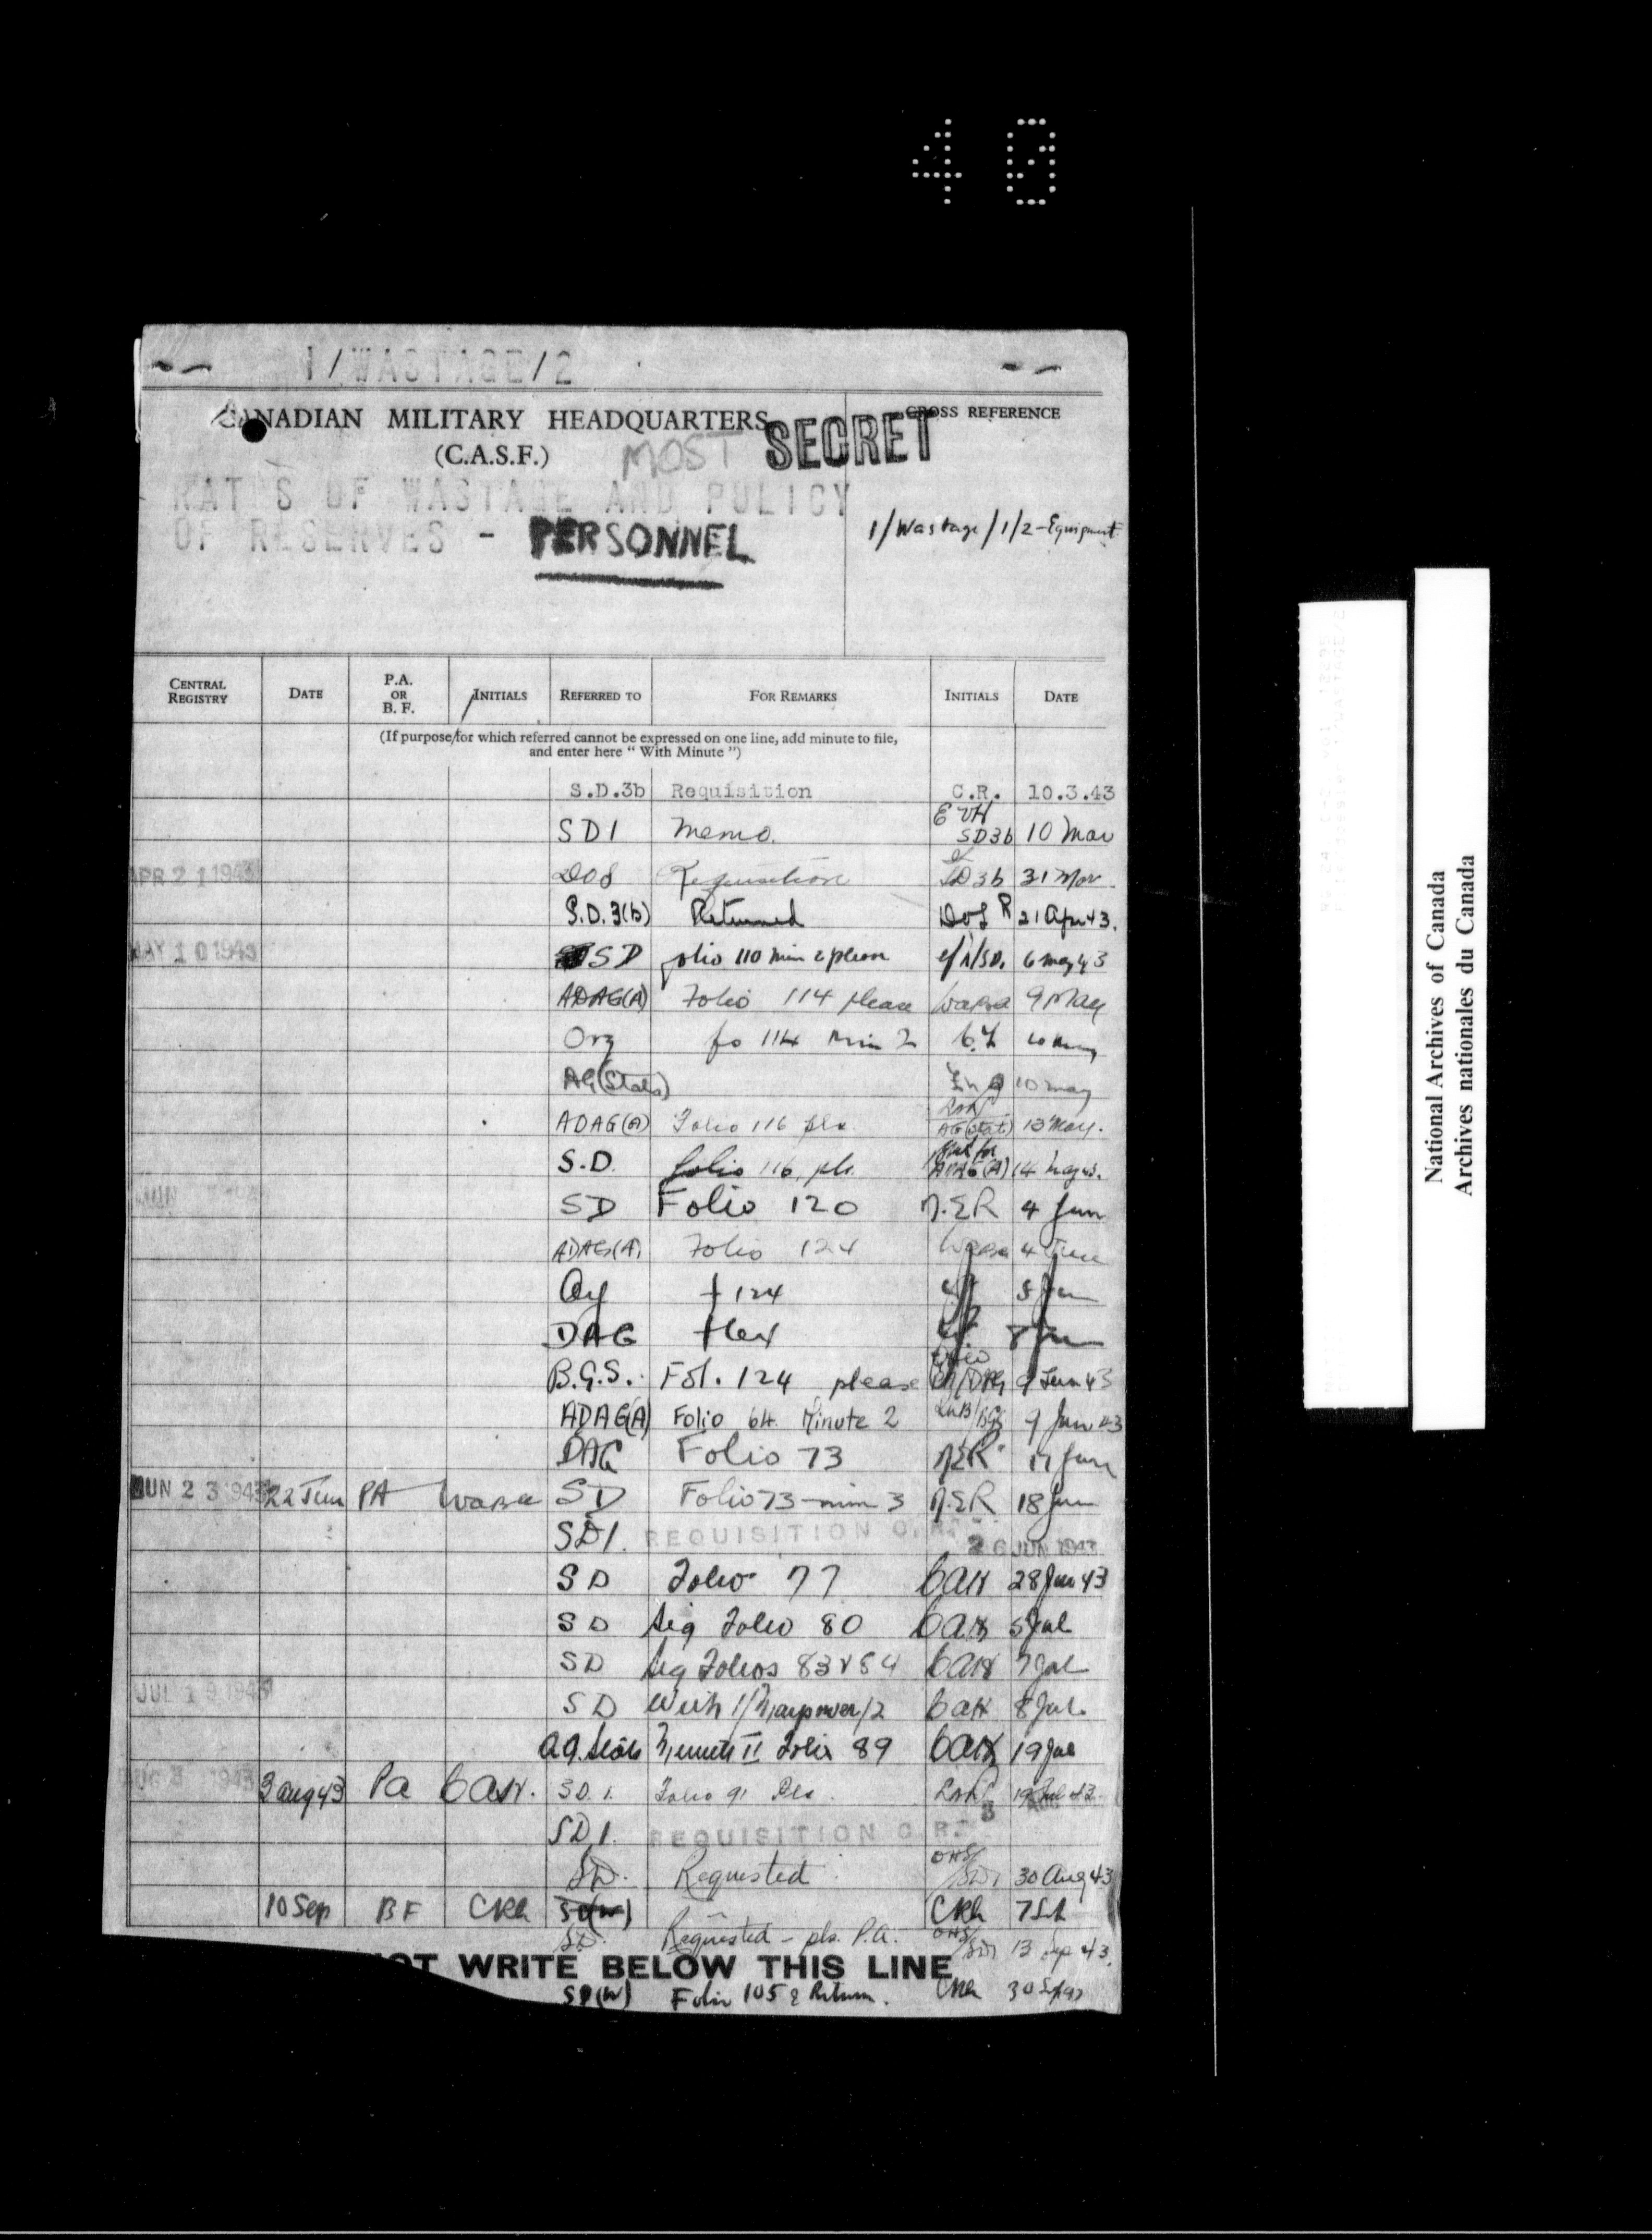 40
1/WASTAGE/2
CANADIAN MILITARY HEADQUARTERS
(C.A.S.F.)
MOST SECRET
CROSS REFERENCE
RAT S OF WASTAGE AND POLICY
OF RESERVES - PERSONNEL
1/Wastage/1/2-Equipment
CENTRAL REGISTRY DATE P.A. OR B. F. INITIALS REFERRED TO FOR REMARKS INITIALS DATE
(If purpose for which referred cannot be expressed on one line, add minute to file,
and enter here " With Minute ")
S.D.3b Requisition C.R. 10.3.43
SD1 Memo. EVH SD3b 10 Mar
APR 21 1943 Requisition SD3b 31 Mar.
S.D.3(b) Returned 21 Apr 43.
MAY 10 1943 SD folio 110 min 2 please 6 May 43
ADAG(A) Folio 114 please 9 May
Org fo 114 Min 2 10 May
AG(Stats) 10 May
ADAG(A) Folio 116 pls. AG(Stats) 13 May.
S.D. folio 116. pls. ADAG(A) 14 May 43.
JUN SD Folio 120 N.E.R 4 Jun
ADAG(A) Folio 124 4 June
Org f 124 8 Jun
DAG 8 Jun
B.G.S. Fol. 124 please 9 Jun 43
ADAG(A) Folio 64. Minute 2 9 Jun 43
DAG Folio 73 N.E.R 17 Jun
JUN 23 1943 22 Jun PA SD Folio 73 - min 3 N.E.R 18 Jun
SD1. REQUISITION C.R. 26 JUN 1943
SD Folio 77 28 Jun 43
SD Folio 80 5 Jul
SD Folios 83 & 84 7 Jul
JUL 19 1943 SD With 1/Manpower/2 8 Jul.
Minute II Folio 89 19 Jul
AUG 3 1943 3 Aug 43 PA S.D.1. Folio 91 Pls. 19 Jul 43
SD1. REQUISITION C.R. 3 AUG
SD. Requested OHS/SD1 30 Aug 43
10 Sep BF CRh SD(W) CRh 7 Sep
SD. Requested - pls. P.A. OHS/SD1 13 Sep 43.
OT WRITE BELOW THIS LINE
SD(W) Folio 105 & Return. CRh 30 Sep 43
National Archives of Canada
Archives nationales du Canada